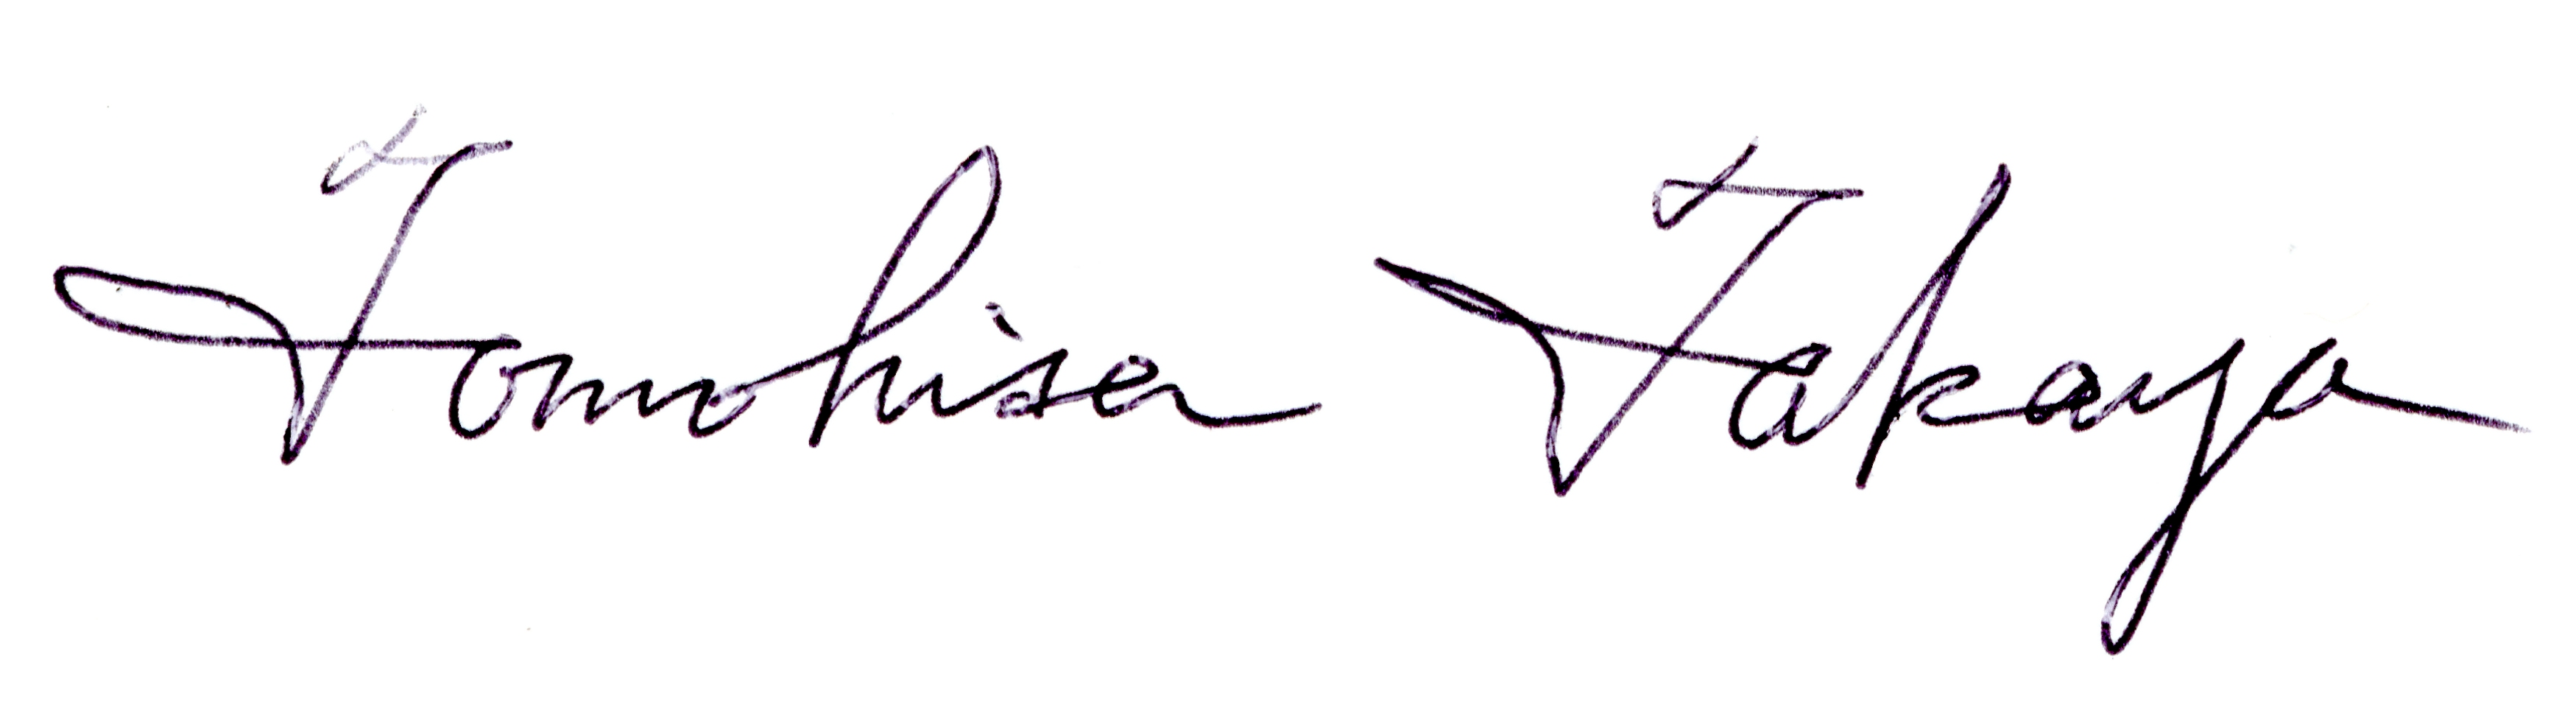 Tomohisa Takaya